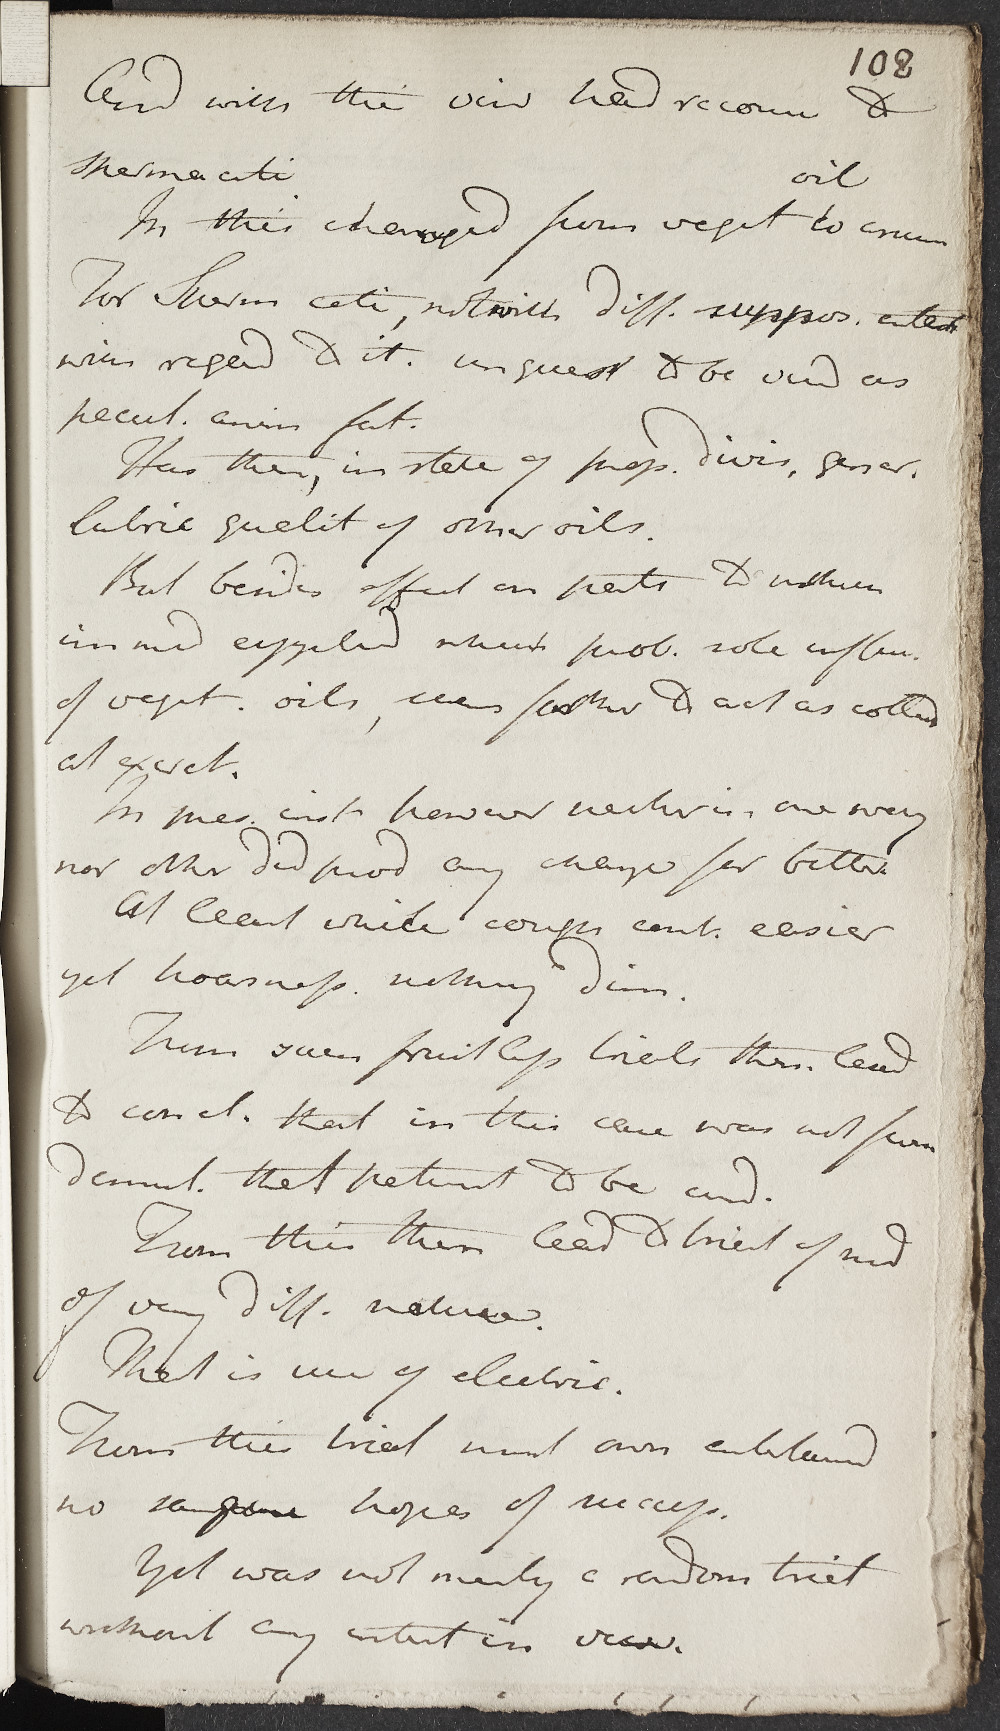 108
And with this view had recour to
spermaceti oil
In this changed from veget to anim
For Sperm ceti, notwith diff. suppos. entert
with regard to it. unquest to be vied as
pecul. anim fat.
Has then, in state of prop. divis, gener.
lubric qualit of other oils.
But besides effect on parts to which
immed applied which prob. sole influ.
of veget. oils, seems farther to act as
at excret.
In pres. inst however neither in one way
nor other did prod any change for better
At least while cough cont. easier
yet hoarsness. nothing dim.
From such fruitless trials then. lead
to concl. that in this case was not from
demul. that patient to be cured.
From this then lead to trial of med
of very diff. nature.
That is use of electric.
From this trial must own entertained
no sanguine hopes of success.
Yet was not merely a random trial
without any intent in view.